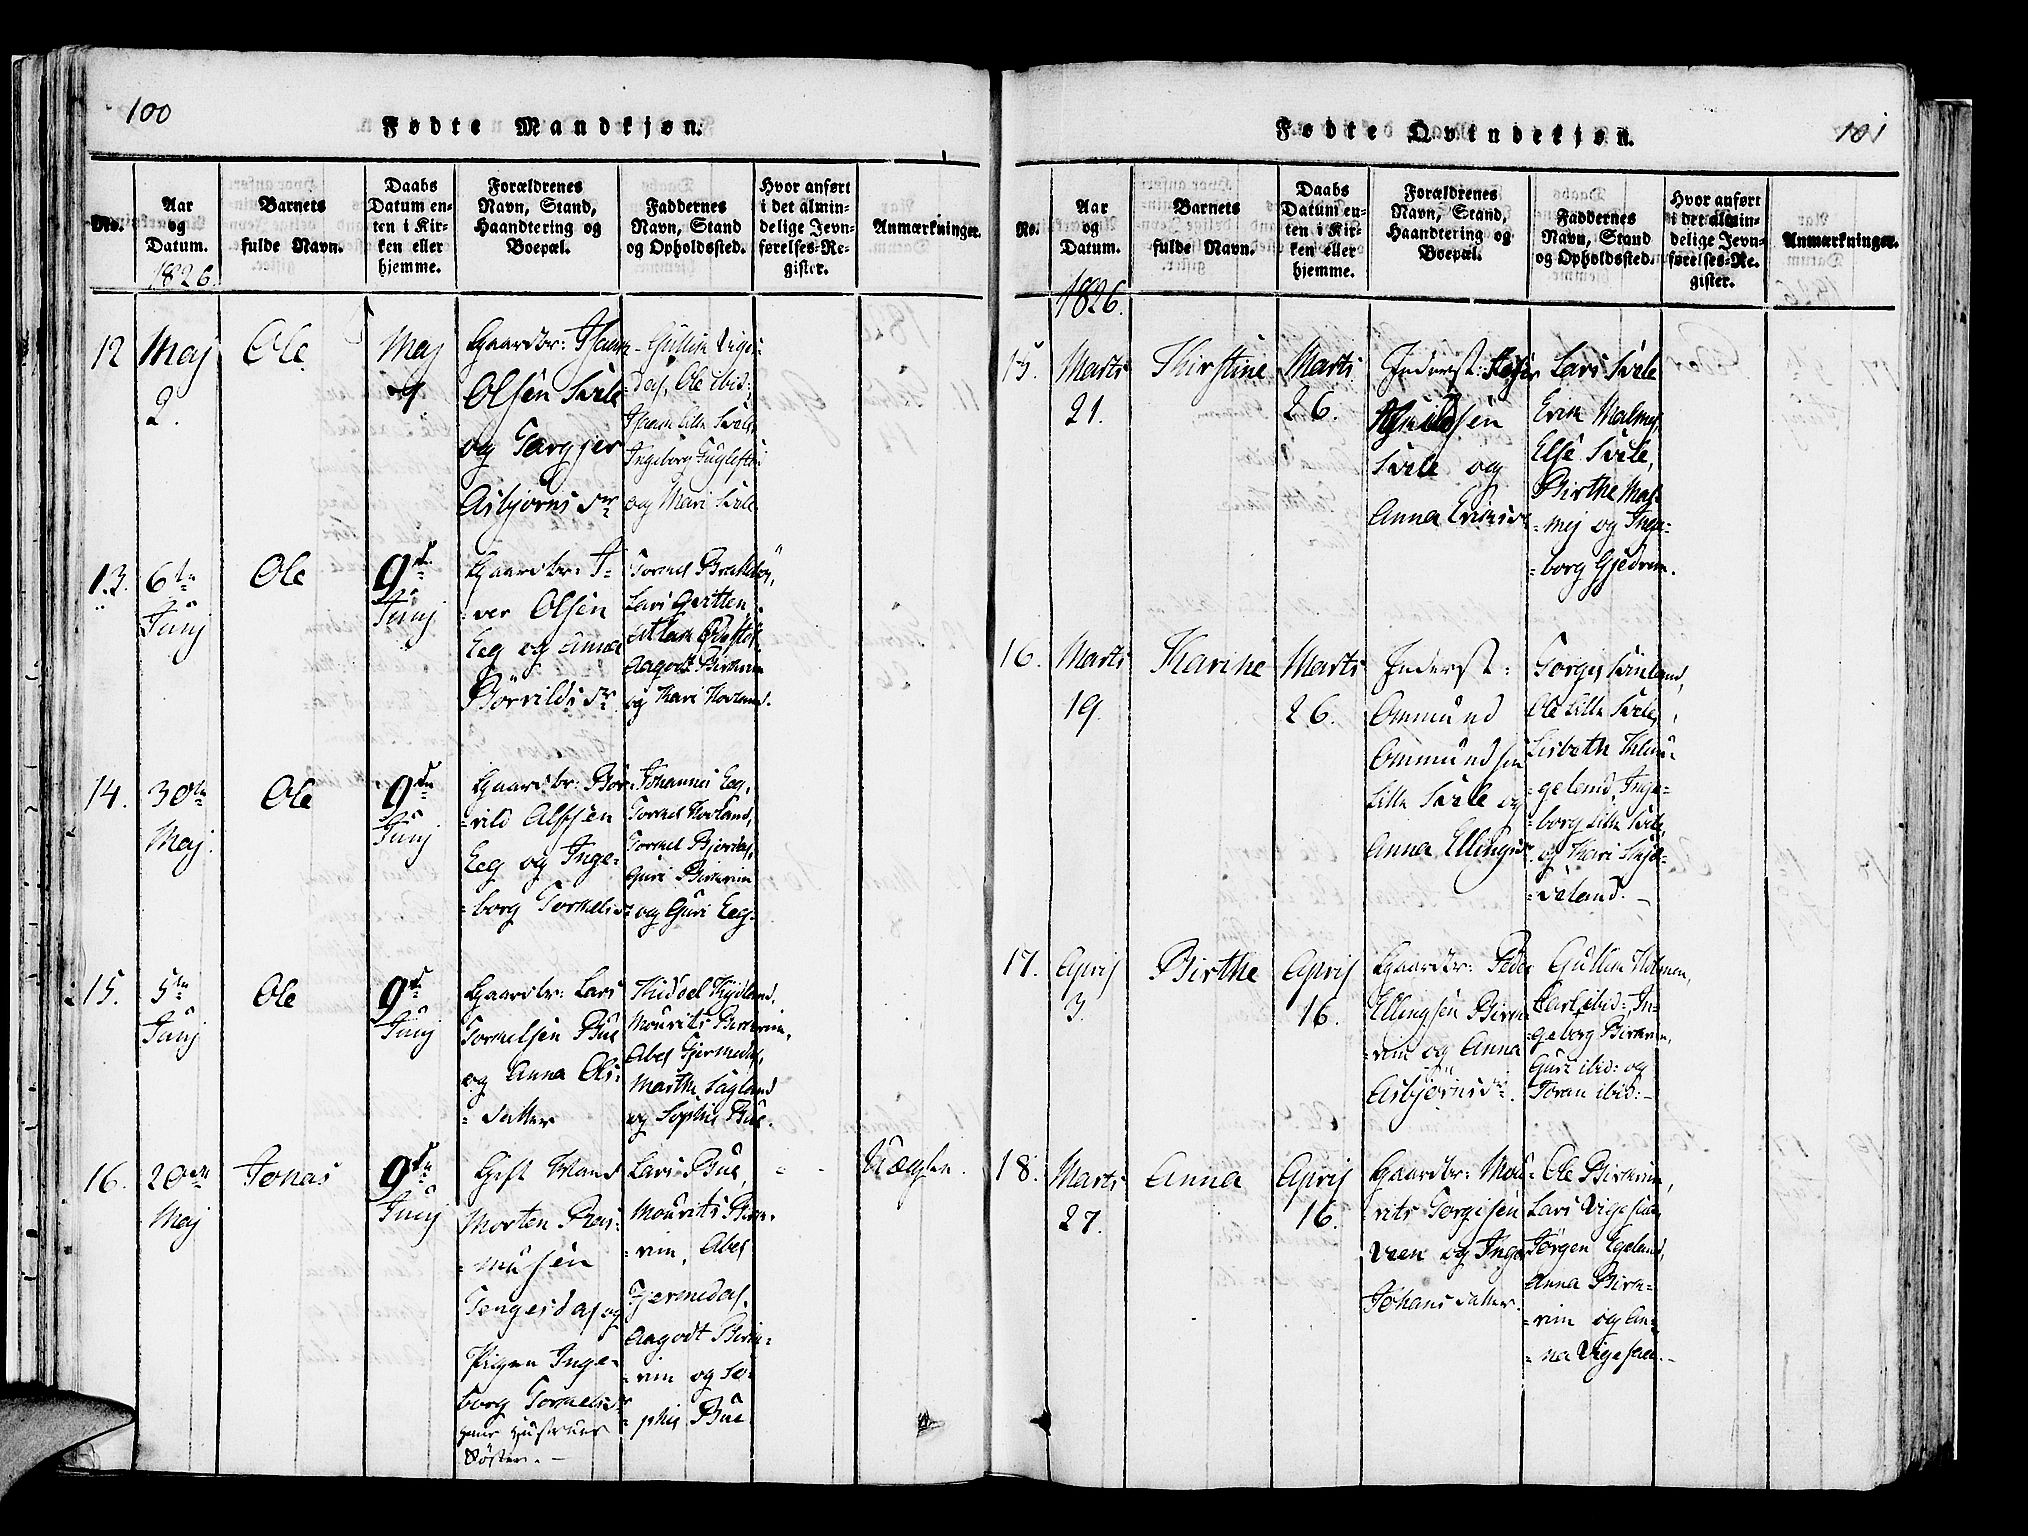 100
Fødte Mandkjøn.
No.
Aar
og
Datum.
1826.
Barnets
fulde Navn.
Daabs
Datum en-
ten i Kir-
ken eller
hjemme.
Forældrenes
Navn, Stand,
Haandtering og
Boepæl.
Faddernes
Navn, Stand
og Opholdssted.
Hvor anført
i det almin-
delige Jevn-
førelses-Re-
gister.
Anmærkninger.
12
Maj
2.
Ole
Maj
4
Gaardbr:
Olsen Svele
og Torgjer
Asbjørnsdr
Ole ibid:
Lille Svele,
Ingeborg
og Mari Svele
13.
6te
Junj
Ole
9de
Junj
Gaardbr: I-
-ver Olsen
Eeg og Anna
Børvildsdr
Tormel
Lars
Aagodt Birkrem
og Kari Hovland.
14.
30te
Maj.
Ole
9de
Junj
Gaardbr: Bør-
-vild Alfsen
Eeg og Inge-
-borg Tormelsdr
Johannes Eeg,
Tormel Hovland,
Tormel Bjordal,
Guri Birkrem
og Guri Eeg-
15.
5te
Junj
Ole
9de
Junj
Gaardbr: Lars
Tormelsen Bue
og Anna Ols-
-datter
Kidsel Kydland,
Mourits Birkrem,
Abel Gjermedal,
Marthe Sagland
og Sophie Bue.
16.
20de
Maj
Jonas
9de
Junj
Gift Mand
Morten Ras-
-musen
Tengesdal og
Pigen Inge-
borg Tormelsdr
hans Hustrues
Søster. -
Lars Bue,
Mourits Birk-
-rem, Abel
Gjermedal,
Aagodt Birk-
-rem og So-
-phie Bue
Uægte.
101
Fødte Qvindekjøn.
No.
Aar
og
Datum.
1826.
Barnets
fulde Navn.
Daabs
Datum en-
ten i Kir-
ken eller
hjemme.
Forældrenes
Navn, Stand,
Haandtering og
Boepæl.
Faddernes
Navn, Stand
og Opholdssted.
Hvor anført
i det almin-
delige Jevn-
førelses-Re-
gister.
Anmærkninger.
15.
Marts
21.
Kirstine
Marts
26.
Inderst:
Svele og
Anna Eriksdr
Lars Svele
Erik Malmej,
Else Svele,
Birthe Mal-
-mej og Inge-
-borg Gjedrem.
16.
Marts
19.
Karine
Marts
26.
Inderst:
Ommund
Ommundsen
Lille Svele og
Anna Ellingsdr
Torges
Ole Lille Svele,
Lisbeth
-geland, Inge-
-borg Lille Svele,
og Kari Skjæ-
-veland. -
17.
Aprij
3.
Birthe
Aprij
16.
Gaardbr: Peder
Ellingsen Birk-
-rem og Anna
Asbjørnsdr.
Gullik Holmen,
Carl ibid: In-
-geborg Birkrem,
Guri ibid: og
Toran ibid: -
18.
Marts
27.
Anna
Aprij
16.
Gaardbr: Mou-
-rits Torgisen
Veen og Inger
Johansdatter.
Ole Birkrem,
Lars Vigesaa,
Jørgen Egeland,
Anna Birk-
-rem og An-
-na Vigesaa. -